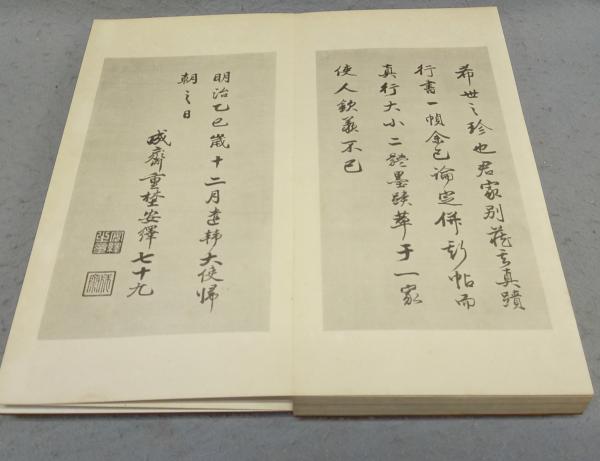 希世之珍也君家別蔵玄真蹟
行書一幀余已論定併彭帖而
真行大小二體墨蹟萃于一家
使人欽羨不已
明治乙巳歳十二月遣韓大使帰
朝之日
成齋重埜安繹七十九